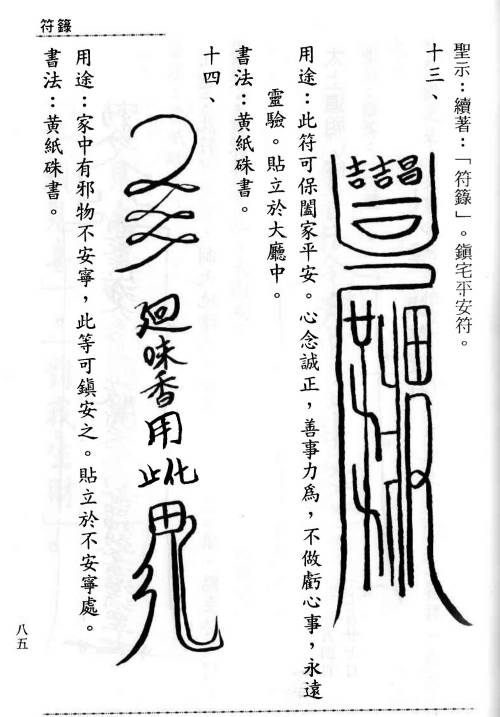 符籙
聖示：續著：「符籙」。鎮宅平安符。
十三、
吉吉昌
用途：此符可保闔家平安。心念誠正，善事力為，不做虧心事，永遠
靈驗。貼立於大廳中。
書法：黃紙硃書。
十四、
廻味香用
用途：家中有邪物不安寧，此等可鎮安之。貼立於不安寧處。
書法：黃紙硃書。
八五